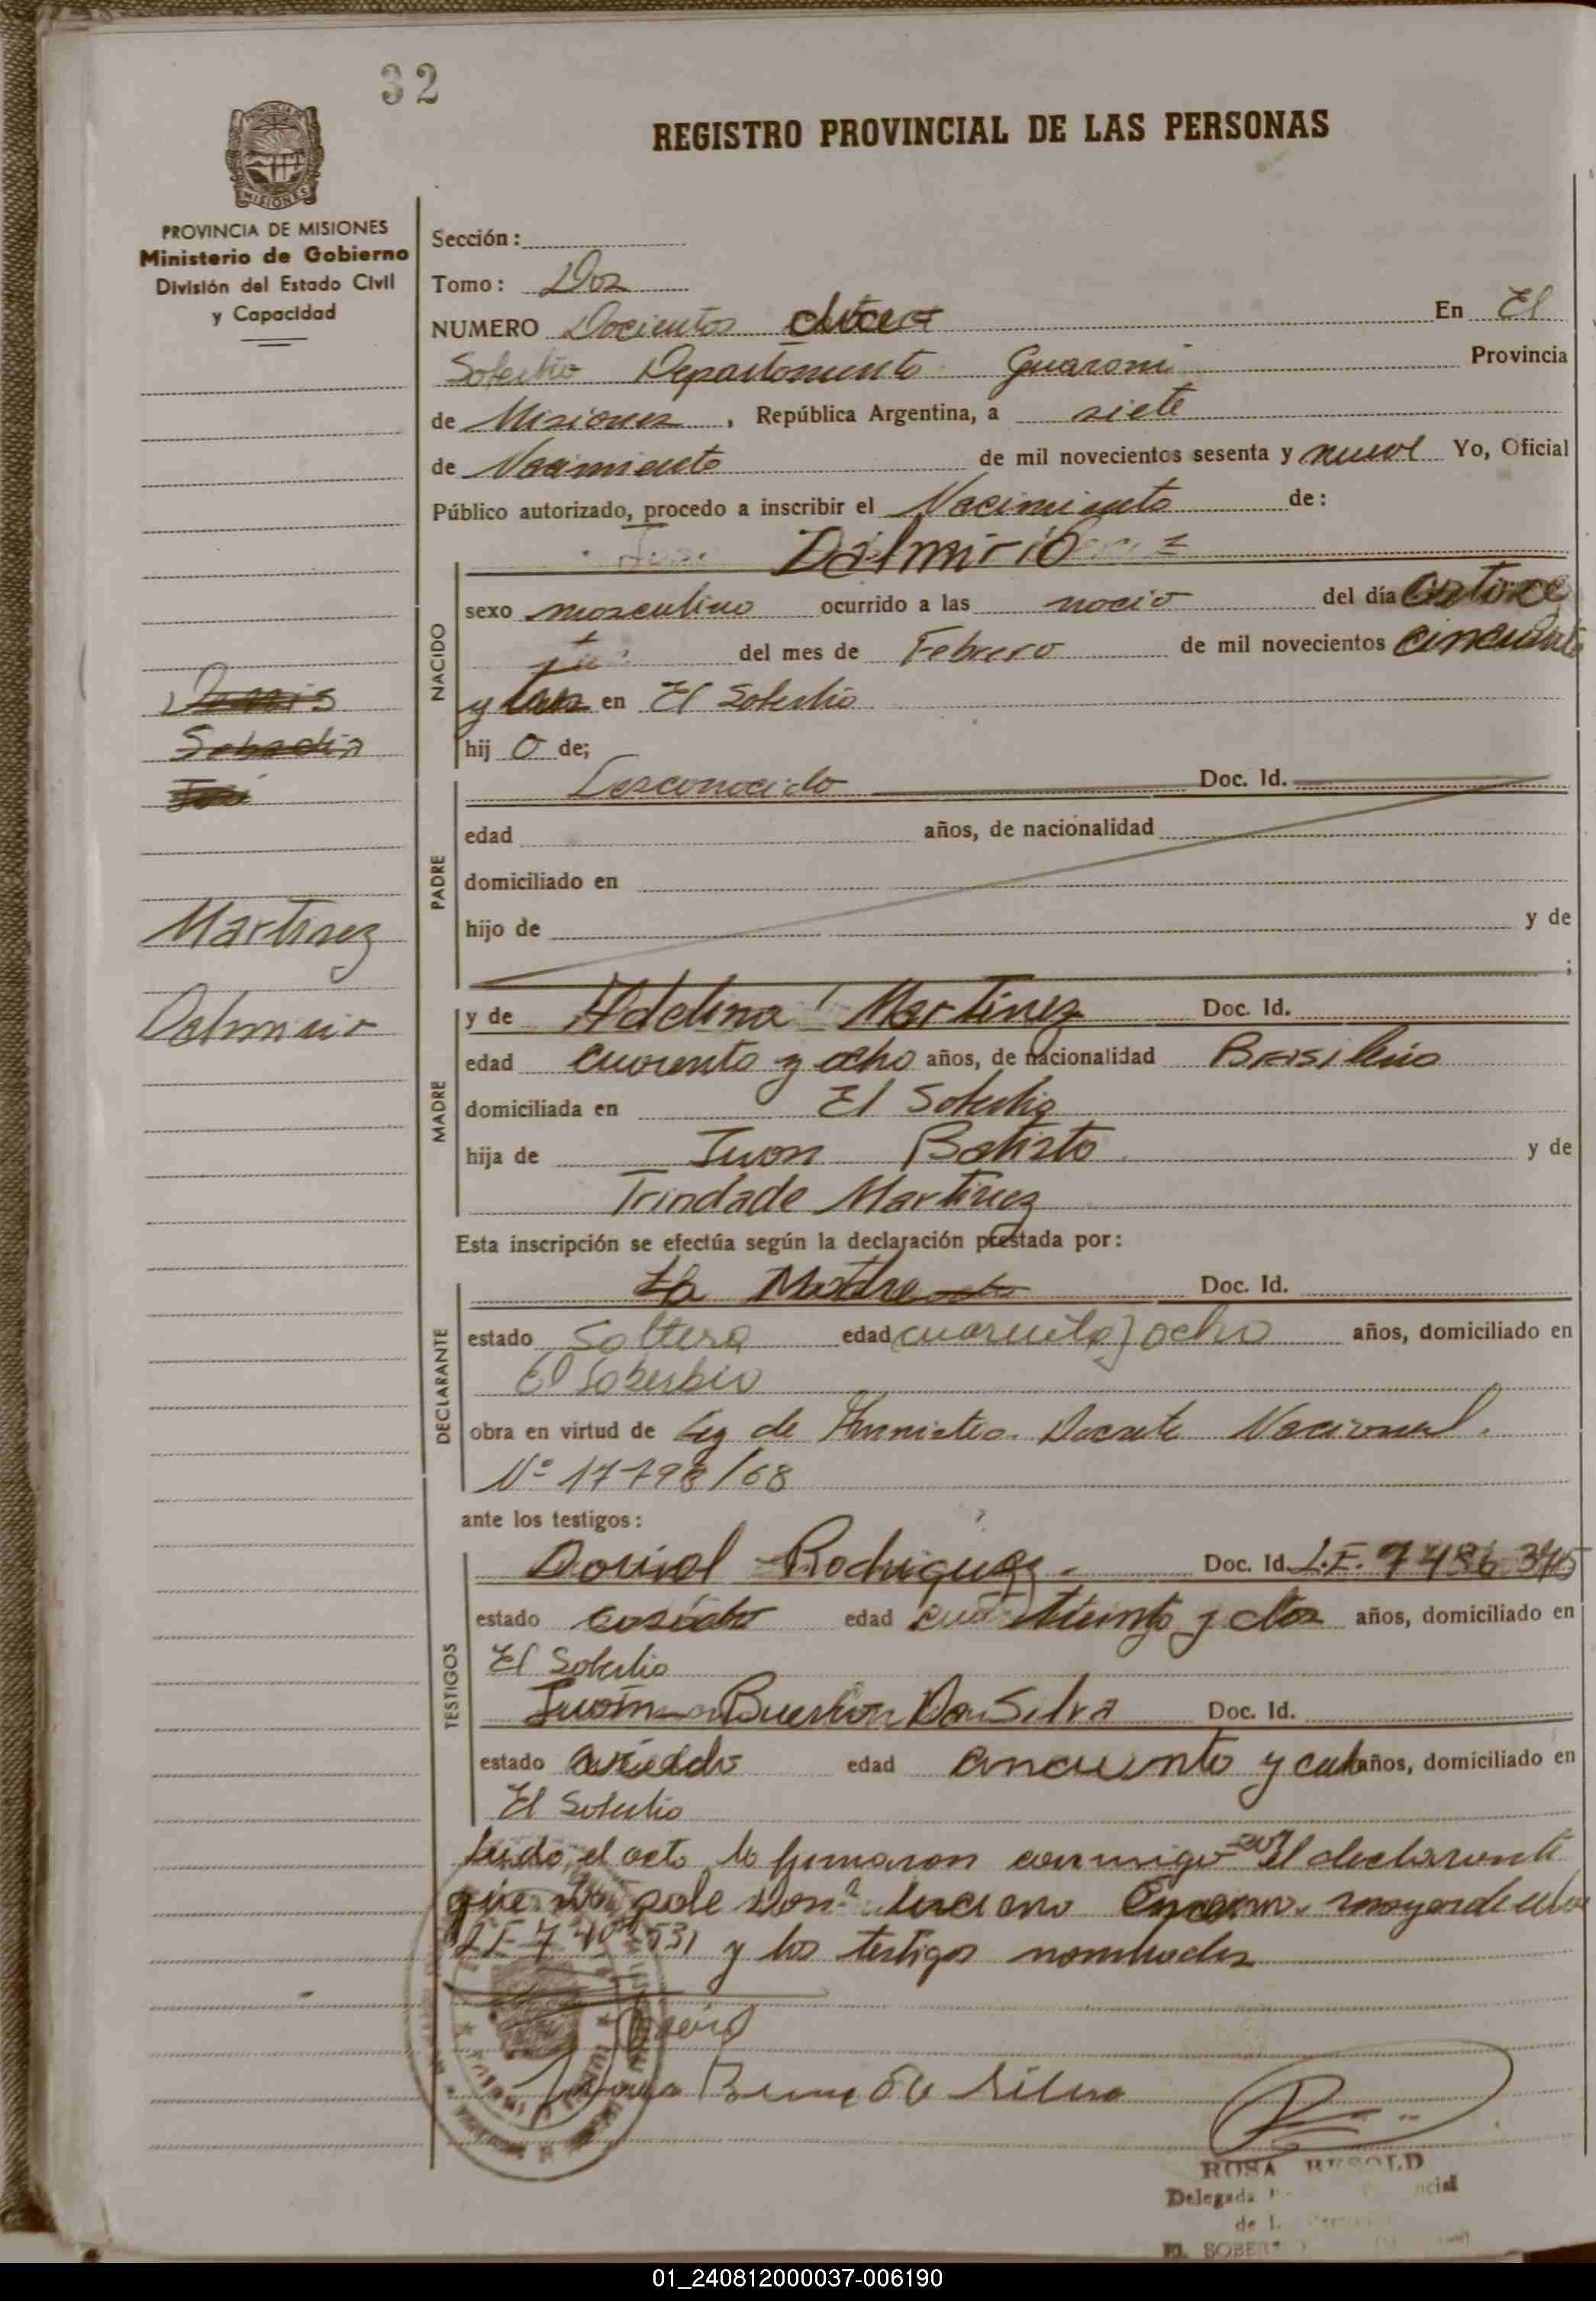 32
REGISTRO PROVINCIAL DE LAS PERSONAS
PROVINCIA DE MISIONES
Ministerio de Gobierno
División del Estado Civil
y Capacidad
MISIONES
Sección:
Tomo: Dos
NUMERO Docientos En El
Soberbio Departamento Guarani Provincia
de Misiones, República Argentina, a siete
de Nacimiento de mil novecientos sesenta y nueve Yo, Oficial
Público autorizado, procedo a inscribir el Nacimiento de:
Dalmirio
NACIDO
sexo masculino ocurrido a las nocio del día catorce
del mes de Febrero de mil novecientos cincuenta
y en El Soberbio
hij o de;
Martinez
Dalmirio
PADRE
Desconocido Doc. Id.
edad años, de nacionalidad
domiciliado en
hijo de y de
;
MADRE
y de Adelina Martinez Doc. Id.
edad cuarenta y ocho años, de nacionalidad Brasileña
domiciliada en El Soberbio
hija de Juan Batista y de
Trindade Martinez
Esta inscripción se efectúa según la declaración prestada por:
DECLARANTE
La Madre Doc. Id.
estado Soltera edad cuarenta y ocho años, domiciliado en
El Soberbio
obra en virtud de Ley de Amnistia. Decreto Nacional.
Nº 17798/68
ante los testigos:
TESTIGOS
Dorival Rodriguez Doc. Id. L.E. 7486375
estado casado edad treinta y dos años, domiciliado en
El Soberbio
Da Silva Doc. Id.
estado casado edad cincuenta y años, domiciliado en
El Soberbio
Leido el acto lo firmaron conmigo el declarante
que no sabe Luciano mayor de edad
y los testigos nombrados
Silva
ROSA RESOLD
Delegada
de
EL SOBER
01_240812000037-006190